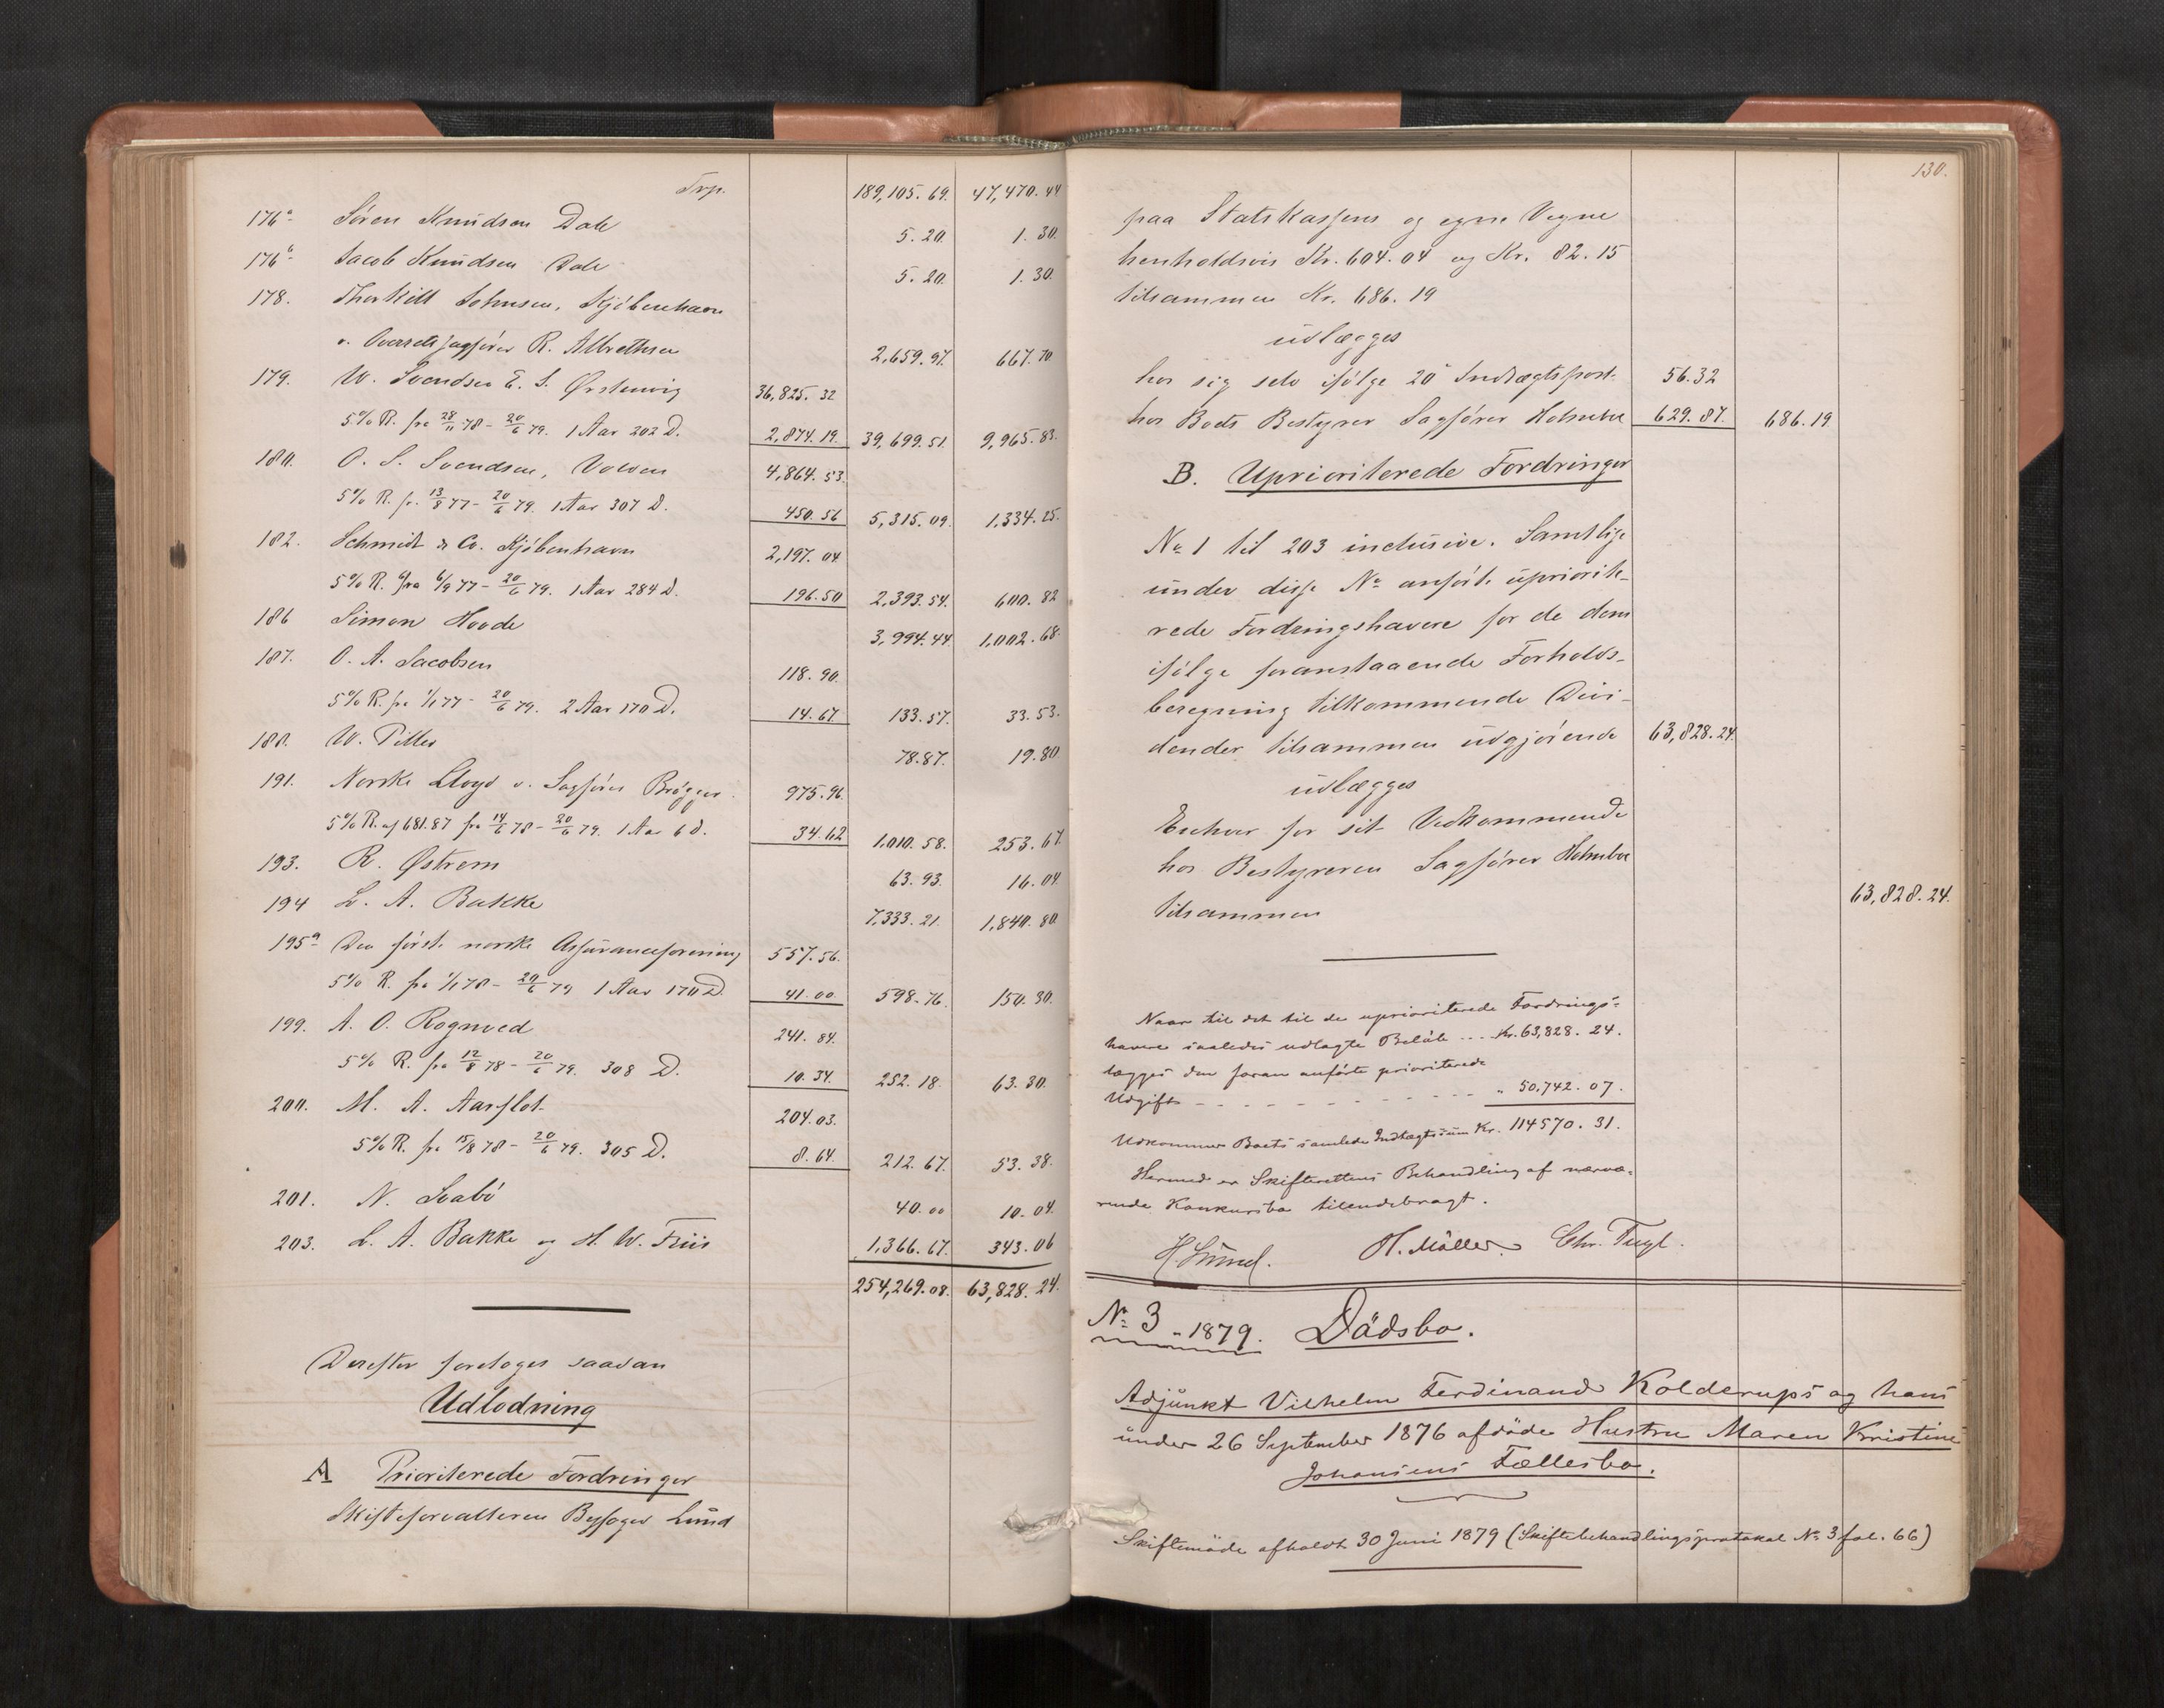 Trp. 189,105.69. 47,470.44
176a Søren Knudsen Dale 5.20. 1.30.
176b Jacob Knudsen Dale 5.20. 1.30.
178. Thorkill Johnsen, Kjøbenhavn
v. Overretssagfører R. Albrethsen 2,659.97. 667.70
179. W. Svendsen E. S. Ørstenvig 36,825.32
5% R. fra 28/11 78 - 20/6 79. 1 Aar 202 D. 2,874.19. 39,699.51. 9,965.83.
180. O. S. Svendsen, Volden 4,864.53.
5% R. fr. 13/8 77 - 20/6 79. 1 Aar 307 D. 450.56 5,315.09. 1,334.25.
182. Schmidt & Co. Kjøbenhavn 2,197.04
5% R. fra 6/9 77 - 20/6 79. 1 Aar 284 D. 196.50 2,393.54. 600.82
186 Simon Hovde 3,994.44 1,002.68.
187. O. A. Jacobsen 118.90.
5% R. fra 1/1 77 - 20/6 79. 2 Aar 170 D. 14.67 133.57. 33.53.
188. W. Piller 78.87. 19.80
191. Norske Lloyd v. Sagfører Brøgger. 975.96.
5% R. af 681.87 fra 14/6 78 - 20/6 79. 1 Aar 6 d. 34.62 1,010.58. 253.67.
193. R. Østrem 63.93. 16.04
194 L. A. Bakke 7,333.21. 1,840.80.
195a Den første norske Assuranceforening 557.56.
5% R. fra 1/1 78 - 20/6 79 1 Aar 170 D. 41.00 598.76 150.30.
199. A. O. Rognved 241.84.
5% R. fra 12/8 78 - 20/6 79. 308 D. 10.34. 252.18. 63.30.
200. M. A. Aarflot 204.03.
5% R. fra 15/8 78 - 20/6 79. 305 D. 8.64. 212.67. 53.38.
201. N. Svabø 40.00 10.04.
203. L. A. Bakke og H. W. Friis 1,366.67. 343.06
254,269.08. 63,828.24.
Derefter foretoges saadan
Udlodning
A Prioriterede Fordringer
Skifteforvalteren Byfoged Lund
130.
paa Statskassens og egne Vegne
henholdsvis Kr. 604.04 og Kr. 82.15
tilsammen Kr. 686.19
udlægges
hos sig selv ifølge 20de Indtægtspost. 56.32
hos Boets Bestyrer Sagfører Holmboe 629.87. 686.19
B. Uprioriterede Fordringer
No 1 til 203 inclusive. Samtlige
under disse No anførte upriorite-
rede Fordringshavere for de dem
ifølge foranstaaende Forholds-
beregning tilkommende Divi-
dender tilsammen udgjørende 63,828.24.
udlægges
Enhver for sit Vedkommende
hos Bestyreren Sagfører Holmboe
tilsammen 63,828.24.
Naar til det til de uprioriterede Fordrings-
havere saaledes udlagte Beløb .... Kr. 63,828.24.
lægges den foran anførte prioriterede
Udgift - - - - - - - - " 50,742.07.
Udkommer Boets samlede Indtægtssum Kr. 114570.31.
Hermed er Skifterettens Behandling af nærvæ-
rende Konkursbo tilendebragt.
H Lund. H. Møller. Chr. Fugl.
No 3 - 1879. Dødsbo.
Adjunkt Vilhelm Ferdinand Kolderups og hans
under 26 September 1876 afdøde Hustru Maren Kristine
Johansens Fællesbo.
Skiftemøde afholdt 30 Juni 1879 (Skiftebehandlingsprotokol No 3 fol. 66)